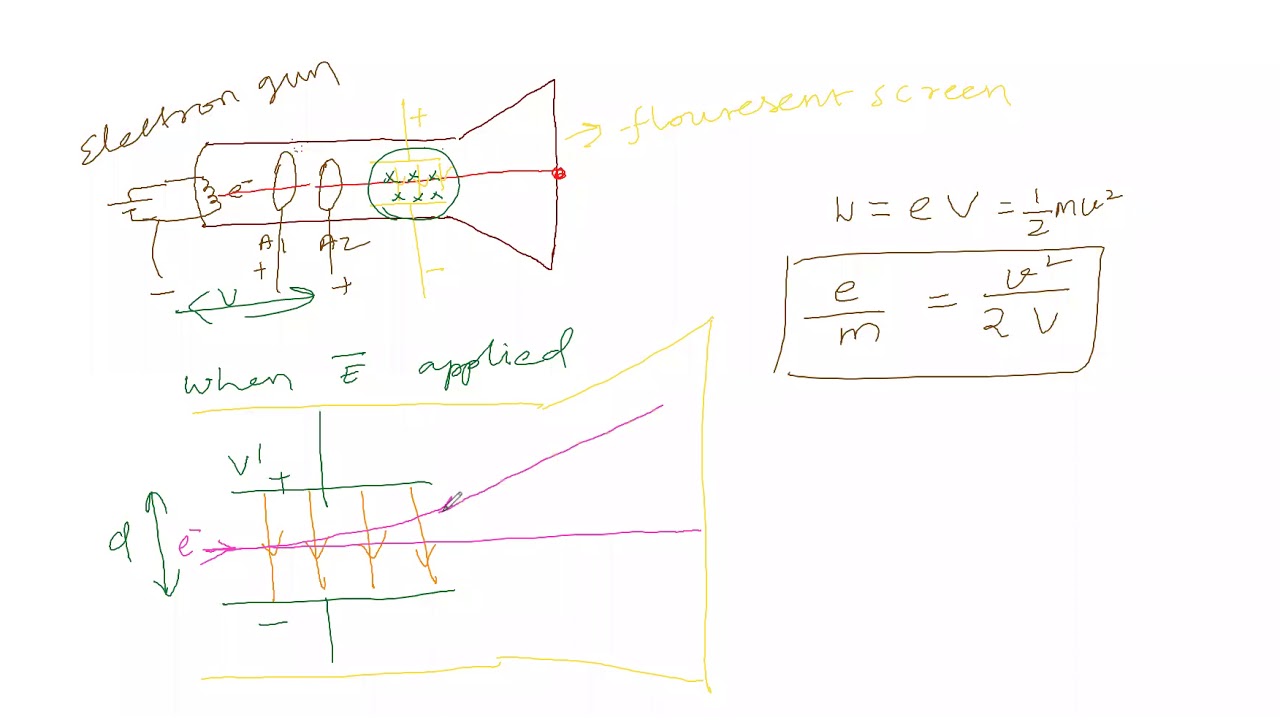 Electron gun
+
flouresent screen
x x x
x x x
e⁻
A1 A2
+ +
−
−
V
W = eV = 1/2 mv²
e/m = v²/2V
when E̅ applied
V' +
d
e⁻
−